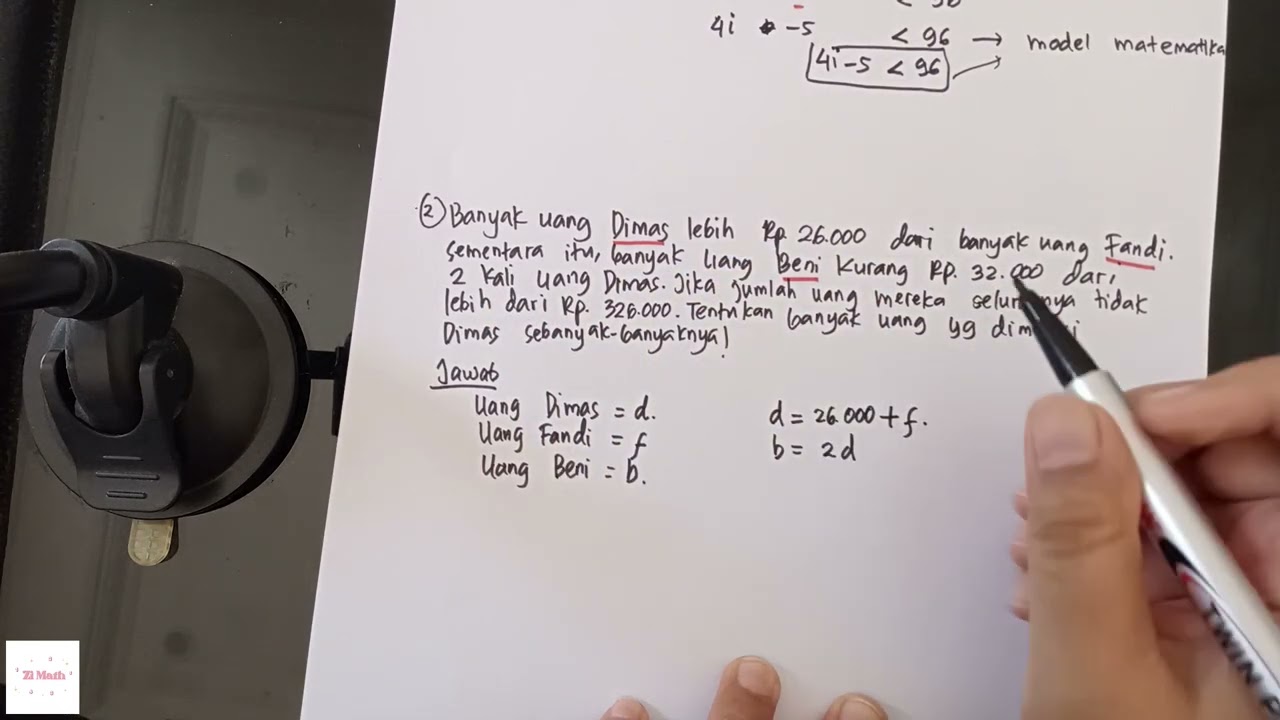 4i -5 < 96 → model matematika
4i-5 < 96
② Banyak uang Dimas lebih Rp. 26.000 dari banyak uang Fandi.
sementara itu, banyak uang Beni kurang Rp. 32.000 dari
2 kali uang Dimas. Jika jumlah uang mereka tidak
lebih dari Rp. 326.000. Tentukan banyak uang yg
Dimas sebanyak-banyaknya!
Jawab
Uang Dimas = d.
Uang Fandi = f
Uang Beni = b.
d = 26.000 + f.
b = 2d
Zi Math